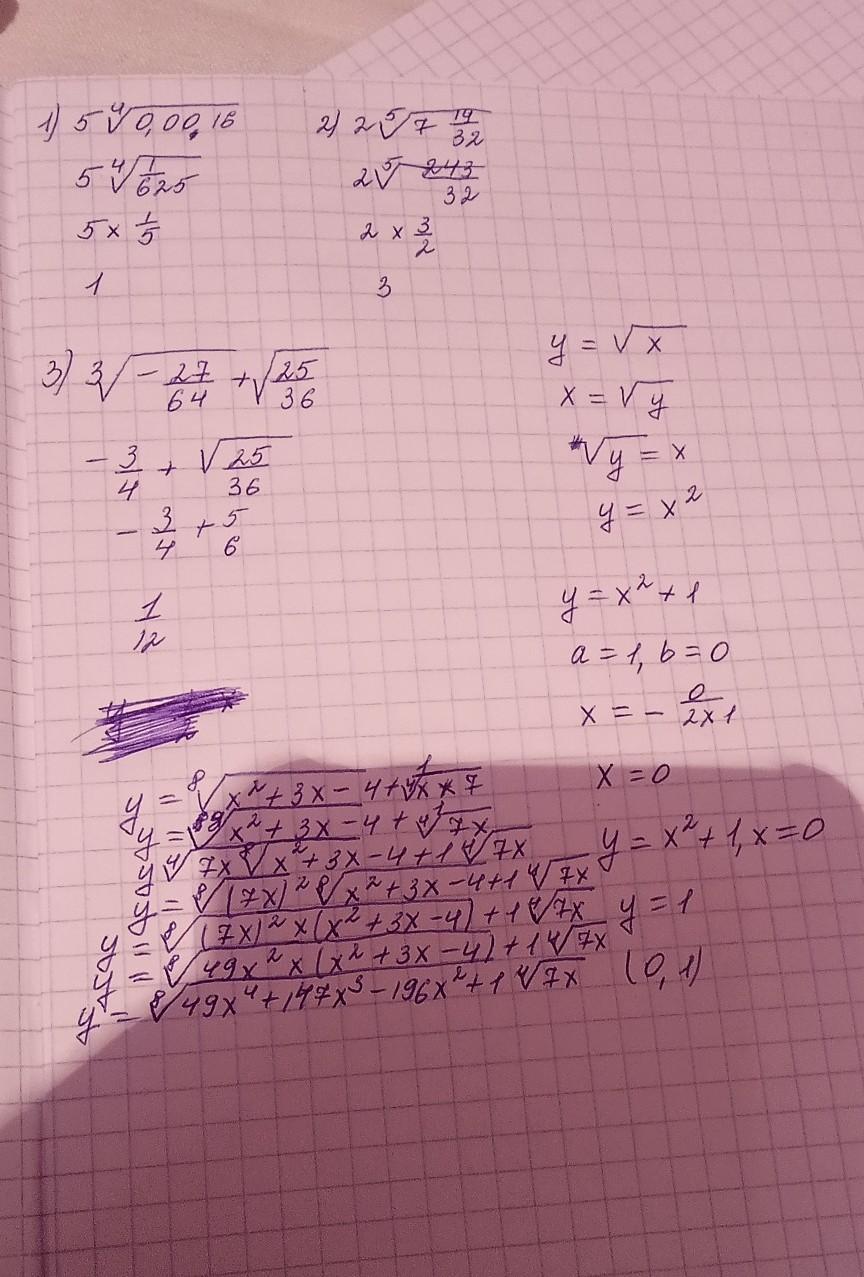 1) 5 ⁴√0,00,16
2) 2 ⁵√7 19/32
5 ⁴√1/625
2 ⁵√243/32
5 × 1/5
2 × 3/2
1
3
3) 3√-27/64 + √25/36
-3/4 + √25/36
-3/4 + 5/6
1/12
y = √x
x = √y
√y = x
y = x²
y = x² + 1
a = 1, b = 0
x = - 0/2×1
x = 0
y = x² + 1, x = 0
y = 1
(0, 1)
y = ⁸√x² + 3x - 4 + 1/⁴√x × 7
y = ⁸√x² + 3x - 4 + 1/⁴√7x
y ⁴√7x ⁸√x² + 3x - 4 + 1 ⁴√7x
y = ⁸√(7x)² ⁸√x² + 3x - 4 + 1 ⁴√7x
y = ⁸√(7x)² × (x² + 3x - 4) + 1 ⁴√7x
y = ⁸√49x² × (x² + 3x - 4) + 1 ⁴√7x
y = ⁸√49x⁴ + 147x³ - 196x² + 1 ⁴√7x